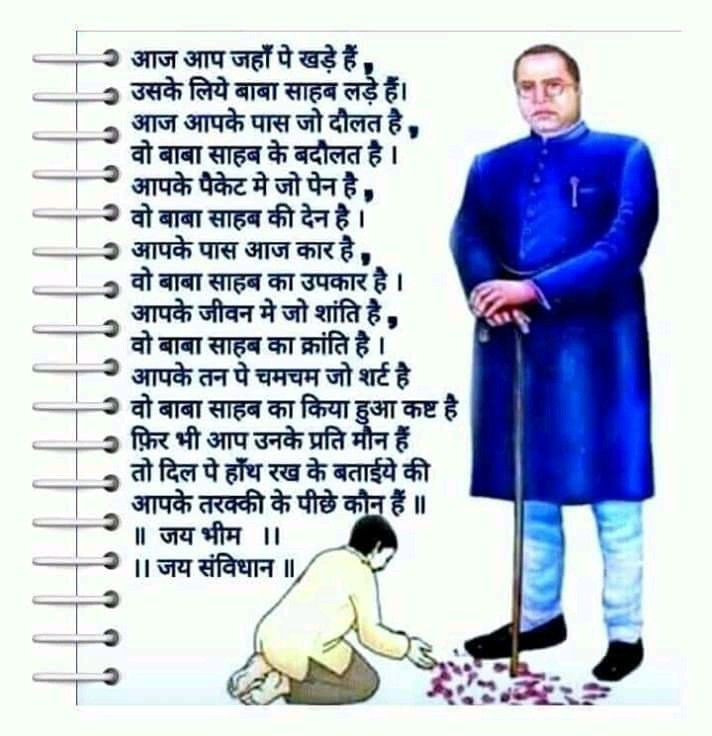 आज आप जहाँ पे खड़े हैं ,
उसके लिये बाबा साहब लड़े हैं।
आज आपके पास जो दौलत है ,
वो बाबा साहब के बदौलत है ।
आपके पैकेट मे जो पेन है ,
वो बाबा साहब की देन है ।
आपके पास आज कार है ,
वो बाबा साहब का उपकार है ।
आपके जीवन मे जो शांति है ,
वो बाबा साहब का क्रांति है ।
आपके तन पे चमचम जो शर्ट है
वो बाबा साहब का किया हुआ कष्ट है
फ़िर भी आप उनके प्रति मौन हैं
तो दिल पे हाँथ रख के बताईये की
आपके तरक्की के पीछे कौन हैं ॥
॥ जय भीम ।।
।। जय संविधान ॥